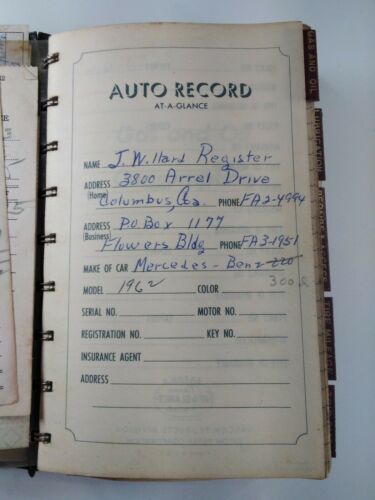 AUTO RECORD
AT-A-GLANCE
NAME J. Willard Register
ADDRESS 3800 Arrel Drive
(Home) Columbus, Ga. PHONE FA2-4994
ADDRESS P.O. Box 1177
(Business) Flowers Bldg PHONE FA3-1951
MAKE OF CAR Mercedes-Benz 220
MODEL 1962 COLOR 300
SERIAL NO. MOTOR NO.
REGISTRATION NO. KEY NO.
INSURANCE AGENT
ADDRESS
GAS AND OIL
LUBRICATION
TIRE MILEAGE